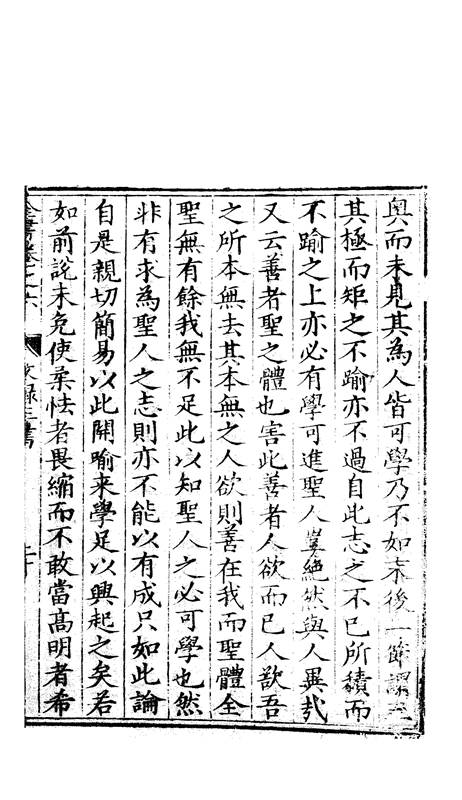 奥而未見其為人皆可學乃不如末後一節謂之
其極而矩之不踰亦不過自此志之不已所積而
不踰之上亦必有學可進聖人豈絶然與人異哉
又云善者聖之體也害此善者人欲而已人欲吾
之所本無去其本無之人欲則善在我而聖體全
聖無有餘我無不足此以知聖人之必可學也然
非有求為聖人之志則亦不能以有成只如此論
自是親切簡易以此開喻來學足以興起之矣若
如前說未免使柔怯者畏縮而不敢當高明者希
全書卷之六 文錄三書 二十